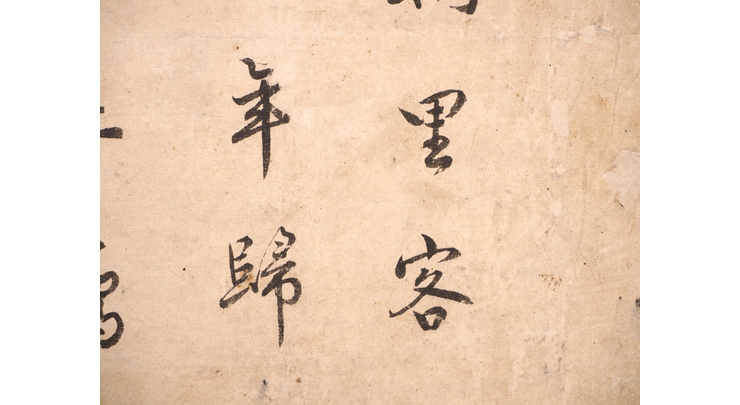 里客
年歸